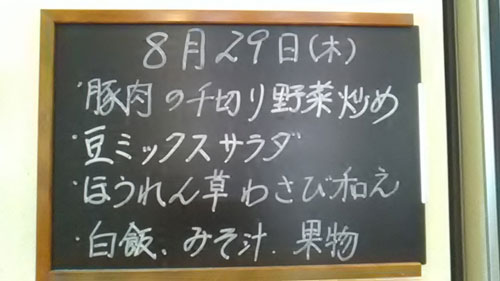 8月29日(木)
・豚肉の千切り野菜炒め
・豆ミックスサラダ
・ほうれん草わさび和え
・白飯、みそ汁、果物